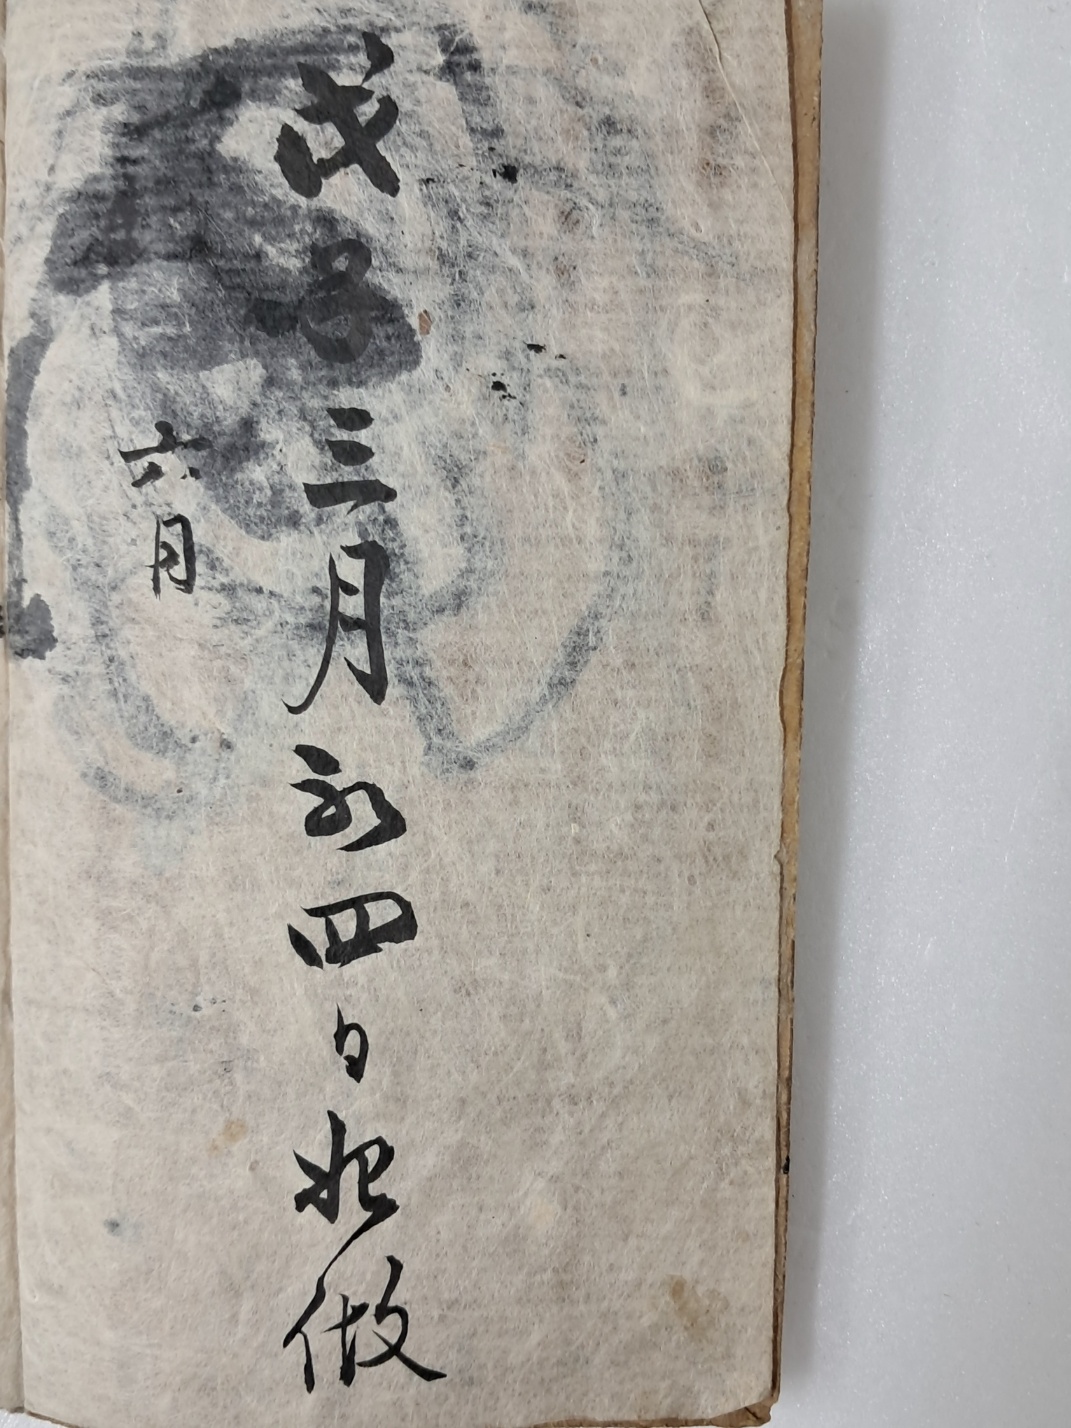 戊子三月初四日始做
六月